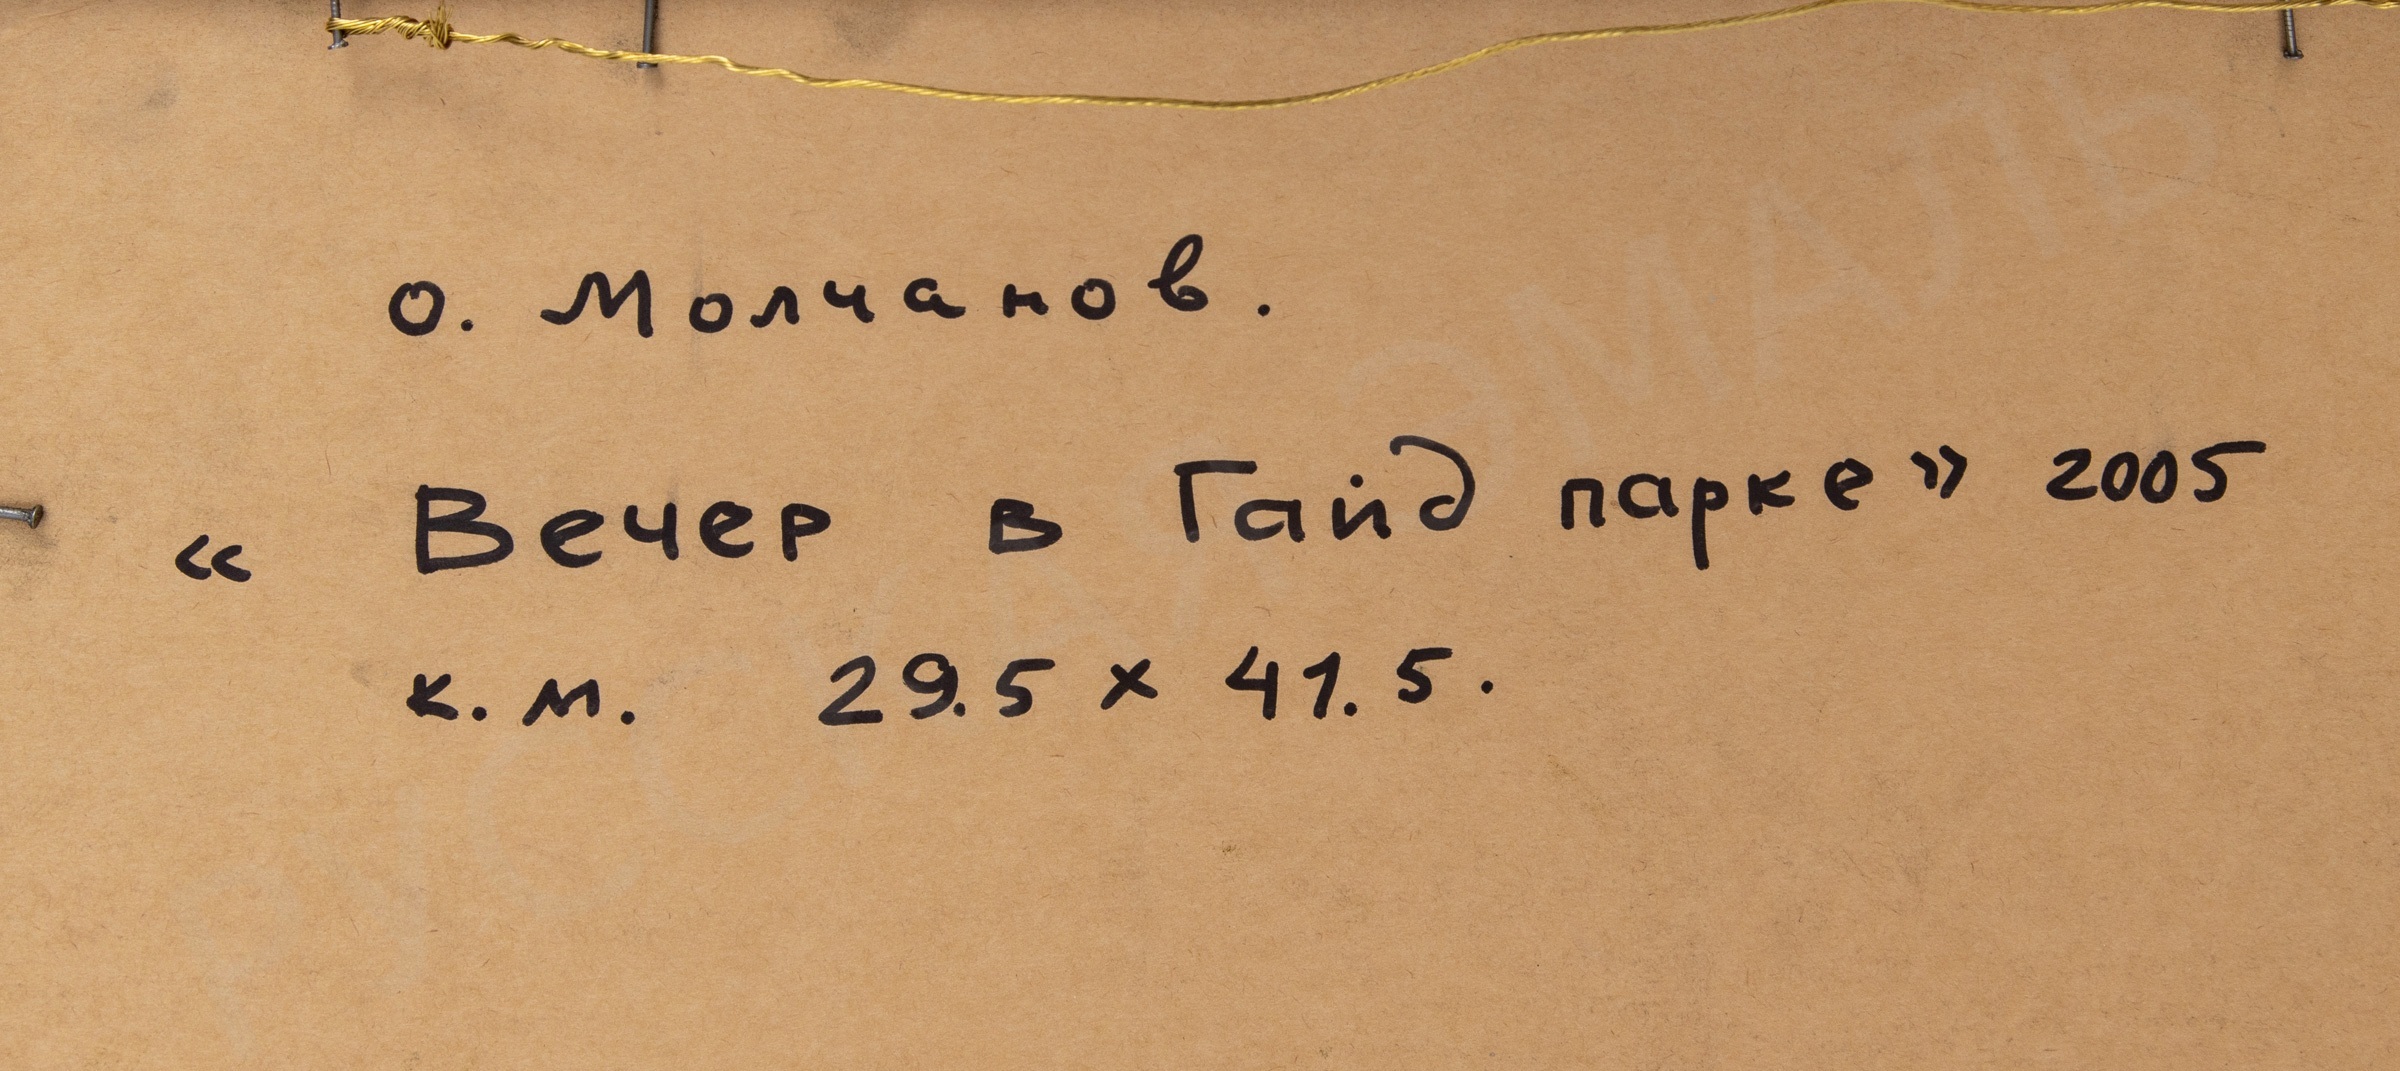 О. Молчанов.
« Вечер в Гайд парке» 2005
к. м. 29.5 х 41.5.
РУССКАЯ ЭМАЛЬ